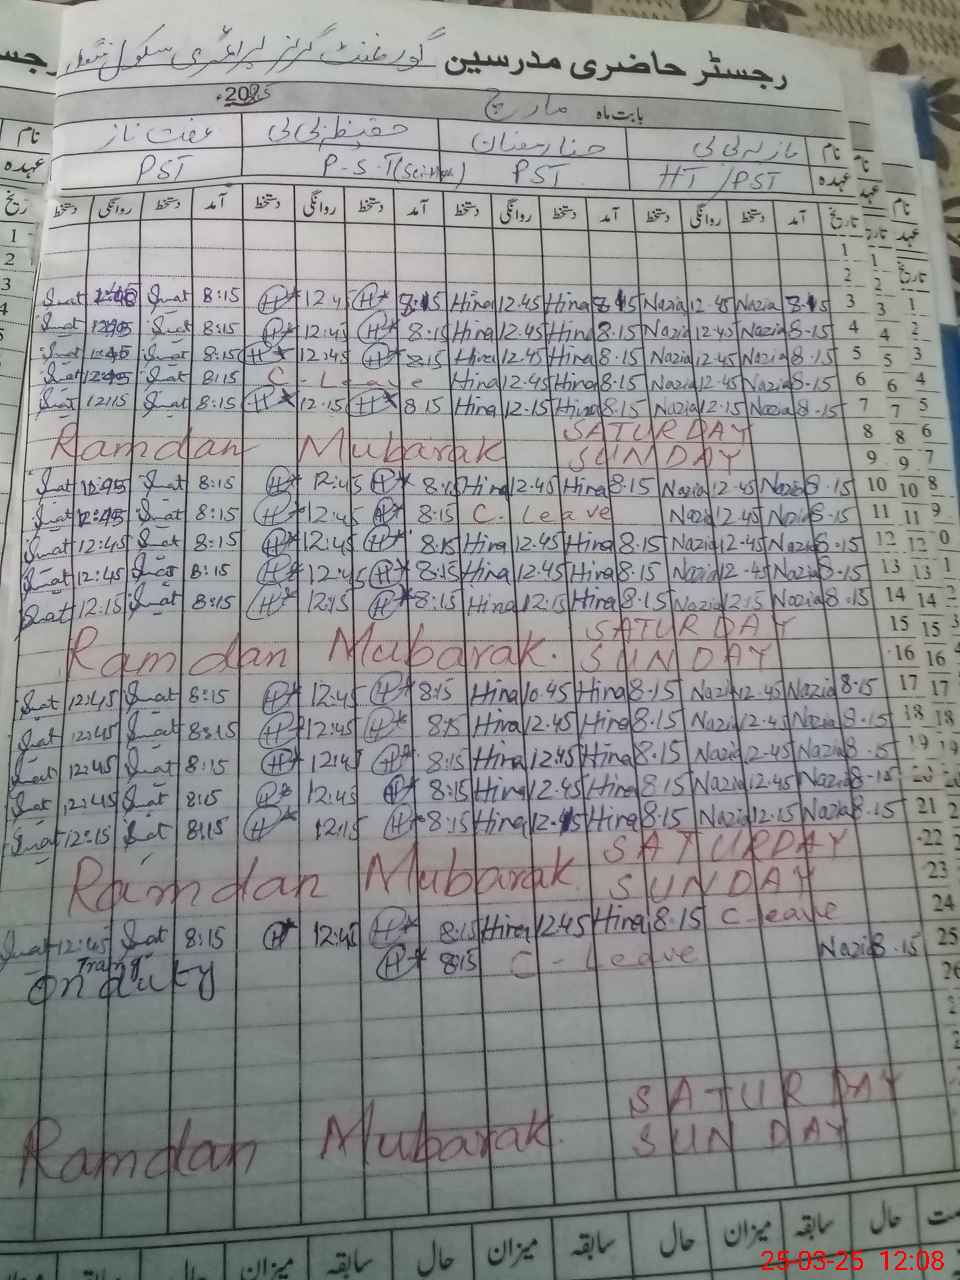 رجسٹر حاضری مدرسین گورنمنٹ گرلز پرائمری سکول
بابت ماہ مارچ 2025ء
نام نازیہ بی بی حنا رمضان حفیظ بی بی عفت ناز نام
عہدہ HT/PST PST P.S.T PST عہدہ
تاریخ آمد دستخط روانگی دستخط آمد دستخط روانگی دستخط آمد دستخط روانگی دستخط آمد دستخط روانگی دستخط تاریخ
1
2
12:45 8:15 H 12.45 H 8:15 Hina 12.45 Hina 8.15 Nazia 12.45 Nazia 8.15 3
12:45 8:15 H 12:45 H 8:15 Hina 12.45 Hina 8.15 Nazia 12.45 Nazia 8.15 4
12:45 8:15 H 12:45 H 8:15 Hina 12.45 Hina 8.15 Nazia 12.45 Nazia 8.15 5
12:45 8:15 C-Leave Hina 12.45 Hina 8.15 Nazia 12.45 Nazia 8.15 6
12:15 8:15 H 12.15 H 8 15 Hina 12.15 Hina 8.15 Nazia 12.15 Nazia 8.15 7
Ramdan Mubarak SATURDAY 8
SUNDAY 9
12:45 8:15 H 12:45 H 8:15 Hina 12.45 Hina 8.15 Nazia 12.45 Nazia 8.15 10
12:45 8:15 H 12:45 H 8:15 C. Leave Nazia 12.45 Nazia 8.15 11
12:45 8:15 H 12:45 H 8:15 Hina 12.45 Hina 8.15 Nazia 12.45 Nazia 8.15 12
12:45 8:15 H 12:45 H 8:15 Hina 12.45 Hina 8.15 Nazia 12.45 Nazia 8.15 13
12:15 8:15 H 12:15 H 8:15 Hina 12.15 Hina 8.15 Nazia 12.15 Nazia 8.15 14
SATURDAY 15
Ramdan Mubarak. SUNDAY 16
12:45 8:15 H 12:45 H 8:15 Hina 10.45 Hina 8.15 Nazia 12.45 Nazia 8.15 17
12:45 8:15 H 12:45 H 8:15 Hina 12.45 Hina 8.15 Nazia 12.45 Nazia 8.15 18
12:45 8:15 H 12:45 H 8:15 Hina 12.45 Hina 8.15 Nazia 12.45 Nazia 8.15 19
12:45 8:15 H 12:45 H 8:15 Hina 12.45 Hina 8.15 Nazia 12.45 Nazia 8.15 20
12:15 8:15 H 12:15 H 8:15 Hina Hina 8.15 Nazia 12.15 Nazia 8.15 21
SATURDAY 22
Ramdan Mubarak SUNDAY 23
12:45 8:15 H 12:45 H 8:15 Hina 12.45 Hina 8.15 C-Leave 24
On duty H 8:15 C-Leave Nazia 8.15 25
26
SATURDAY
Ramdan Mubarak. SUNDAY
حال سابقہ میزان حال سابقہ میزان حال سابقہ میزان حال
25-03-25 12:08